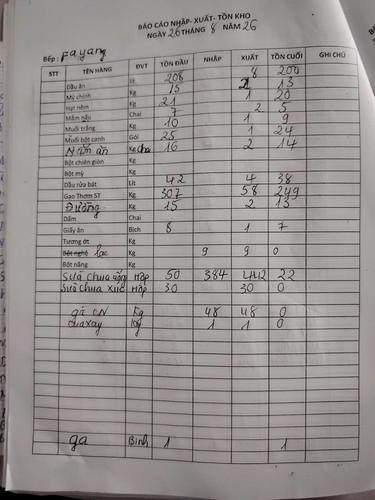 BÁO CÁO NHẬP- XUẤT- TỒN KHO
NGÀY 26 THÁNG 8 NĂM 26
Bếp : Payang
STT TÊN HÀNG ĐVT TỒN ĐẦU NHẬP XUẤT TỒN CUỐI GHI CHÚ
Dầu ăn Lit 208 8 200
Mỳ chính Kg 15 2 13
Hạt nêm Kg 21 1 20
Mắm nêm Chai 7 2 5
Muối trắng Kg 10 1 9
Muối bột canh Gói 25 1 24
Kg Chai 16 2 14
Bột chiên giòn Kg
Bột mỳ Kg
Dầu rửa bát Lit 42 4 38
Gạo Thơm ST Kg 307 58 249
Đường Kg 15 2 13
Dấm Chai
Giấy ăn Bịch 8 1 7
Tương ớt Kg
Bột nghệ lạc Kg 9 9 0
Bột năng Kg
Sữa chua uống Hộp 50 384 412 22
Sữa chua xúc Hộp 30 30 0
gà CN Kg 48 48 0
cua xay Kg 1 1 0
ga Bình 1 1